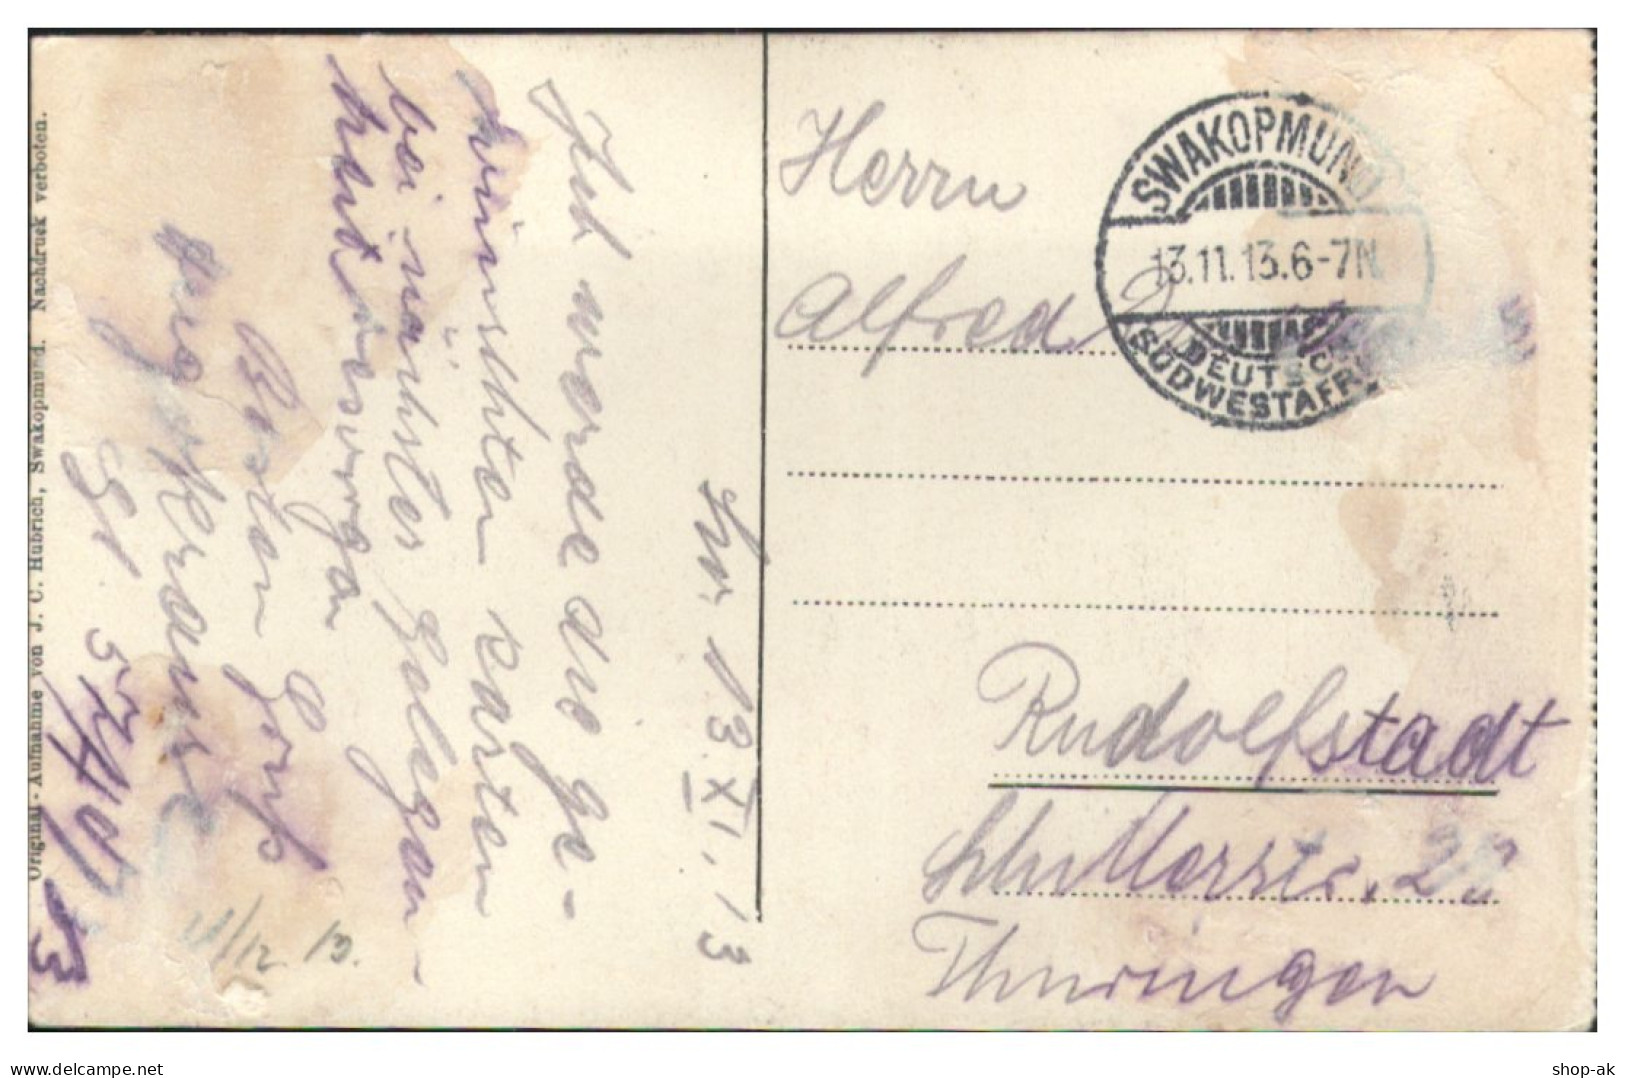 Original-Aufnahme von J. C. Hubrich, Swakopmund. Nachdruck verboten.
Sw. 13.XI.13
Ich werde die ge-
wünschten Karten
bei nächster Gelegen-
heit besorgen
Besten Gruß
Krause
11/12. 13.
SWAKOPMUND
13.11.13.6-7N.
DEUTSCH
SÜDWESTAFR
Herrn
Alfred
Rudolfstadt
Schillerstr. 22
Thüringen
delcampe.net
shop-ak